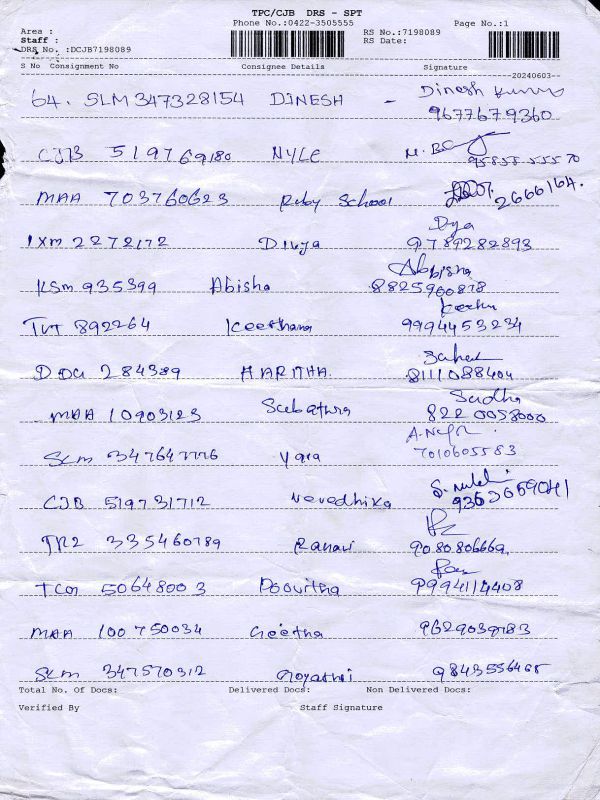 TPC/CJB DRS - SPT
Phone No.:0422-3505555
Page No.:1
Area :
Staff :
DRS No. :DCJB7198089
RS No.:7198089
RS Date:
S No Consignment No Consignee Details Signature
--20240603--
64. SLM 347328154 DINESH - Dinesh Kumar
9677679360
CJB 519769180 NYLE
MAA 703760623 Ruby School 2666164.
IXM 2272172 Divya Dya
9789282893
KSM 935399 Abisha Abbisha
8825960878
TVT 892264 Keerthana Keerthu
9994453234
284389 HARITHA
8111088404
MAA 10903123 Sudha
8220058000
SLM 347647776 Yara
7010605583
CJB 519731712 Nevedhika
9363659041
TRZ 335460789 Ranavi
9080806669
5064800 3 Poovitha
9994114408
MAA 100750034 Geetha 9629039783
SLM 347570312 Goyathri 9843556465
Total No. Of Docs: Delivered Docs: Non Delivered Docs:
Verified By Staff Signature